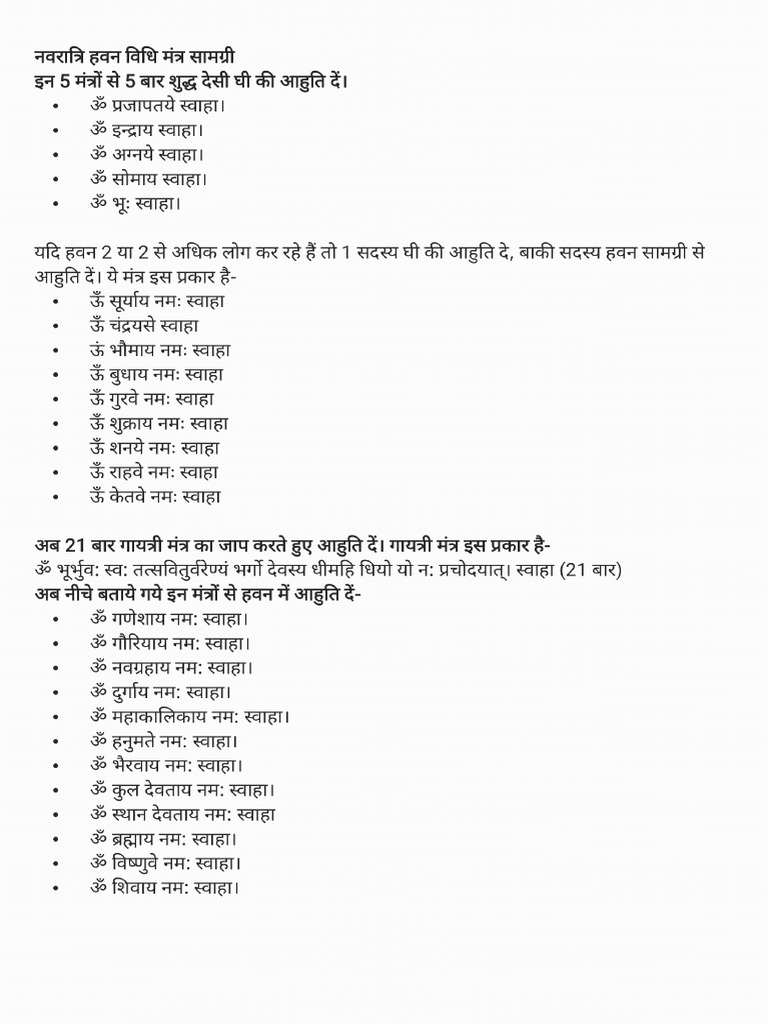 नवरात्रि हवन विधि मंत्र सामग्री
इन 5 मंत्रों से 5 बार शुद्ध देसी घी की आहुति दें।
• ॐ प्रजापतये स्वाहा।
• ॐ इन्द्राय स्वाहा।
• ॐ अग्नये स्वाहा।
• ॐ सोमाय स्वाहा।
• ॐ भूः स्वाहा।
यदि हवन 2 या 2 से अधिक लोग कर रहे हैं तो 1 सदस्य घी की आहुति दे, बाकी सदस्य हवन सामग्री से
आहुति दें। ये मंत्र इस प्रकार है-
• ऊँ सूर्याय नमः स्वाहा
• ऊँ चंद्रयसे स्वाहा
• ऊं भौमाय नमः स्वाहा
• ऊँ बुधाय नमः स्वाहा
• ऊँ गुरवे नमः स्वाहा
• ऊँ शुक्राय नमः स्वाहा
• ऊँ शनये नमः स्वाहा
• ऊँ राहवे नमः स्वाहा
• ऊँ केतवे नमः स्वाहा
अब 21 बार गायत्री मंत्र का जाप करते हुए आहुति दें। गायत्री मंत्र इस प्रकार है-
ॐ भूर्भुव: स्व: तत्सवितुर्वरेण्यं भर्गो देवस्य धीमहि धियो यो न: प्रचोदयात्। स्वाहा (21 बार)
अब नीचे बताये गये इन मंत्रों से हवन में आहुति दें-
• ॐ गणेशाय नम: स्वाहा।
• ॐ गौरियाय नम: स्वाहा।
• ॐ नवग्रहाय नम: स्वाहा।
• ॐ दुर्गाय नम: स्वाहा।
• ॐ महाकालिकाय नम: स्वाहा।
• ॐ हनुमते नम: स्वाहा।
• ॐ भैरवाय नम: स्वाहा।
• ॐ कुल देवताय नम: स्वाहा।
• ॐ स्थान देवताय नम: स्वाहा
• ॐ ब्रह्माय नम: स्वाहा।
• ॐ विष्णुवे नम: स्वाहा।
• ॐ शिवाय नम: स्वाहा।